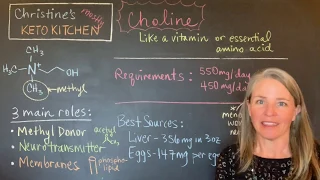 Christine's
mostly
KETO KITCHEN
Choline
Like a vitamin or essential
amino acid
CH₃
H₃C
N
+
OH
CH₃
methyl
Requirements:
550mg/day
450mg/day
3 main roles:
• Methyl Donor
• Neurotransmitter
• Membranes
acetyl
phospho-
lipid
Best Sources:
Liver - 356mg in 3oz
Eggs - 147mg per egg